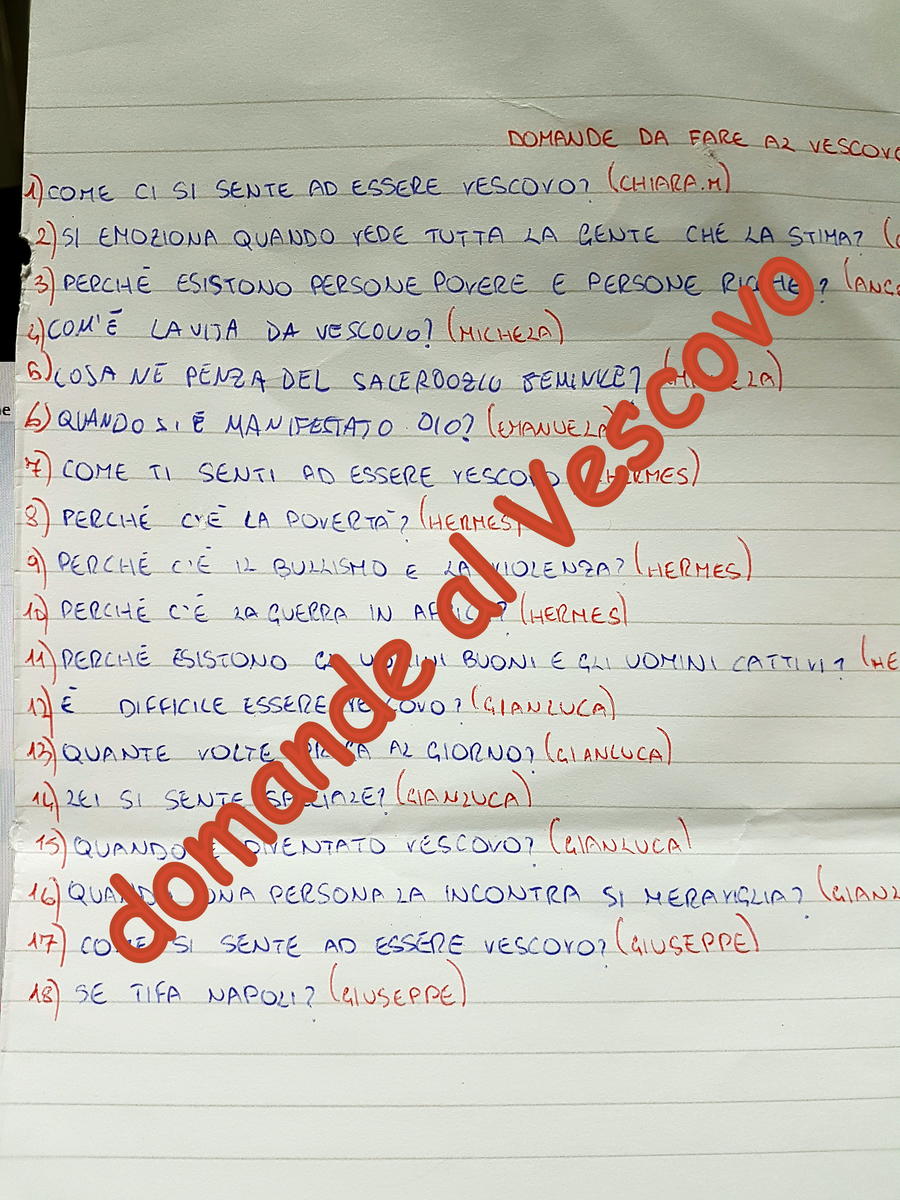 DOMANDE DA FARE AL VESCOVO
1) COME CI SI SENTE AD ESSERE VESCOVO? (CHIARA.M)
2) SI EMOZIONA QUANDO VEDE TUTTA LA GENTE CHE LA STIMA?
3) PERCHÈ ESISTONO PERSONE POVERE E PERSONE RICCHE? (ANG
4) COM'È LA VITA DA VESCOVO? (MICHELA)
5) COSA NE PENZA DEL SACERDOZIO FEMINILE? (MICHELA)
6) QUANDO SI È MANIFESTATO DIO? (EMANUELA)
7) COME TI SENTI AD ESSERE VESCOVO (HERMES)
8) PERCHÉ C'È LA POVERTÀ? (HERMES)
9) PERCHÉ C'È IL BULLISMO E LA VIOLENZA? (HERMES)
10) PERCHÉ C'È LA GUERRA IN AFRICA? (HERMES)
11) PERCHÉ ESISTONO GLI UOMINI BUONI E GLI UOMINI CATTIVI? (HE
12) È DIFFICILE ESSERE VESCOVO? (GIANLUCA)
13) QUANTE VOLTE PREGA AL GIORNO? (GIANLUCA)
14) LEI SI SENTE SPECIALE? (GIANLUCA)
15) QUANDO È DIVENTATO VESCOVO? (GIANLUCA)
16) QUANDO UNA PERSONA LA INCONTRA SI MERAVIGLIA? (GIANL
17) COME SI SENTE AD ESSERE VESCOVO? (GIUSEPPE)
18) SE TIFA NAPOLI? (GIUSEPPE)
domande al Vescovo